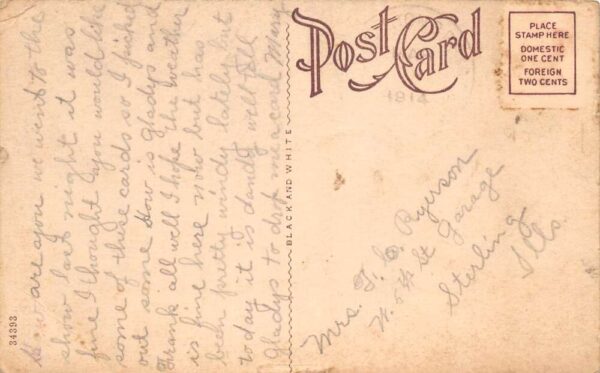 How are you we went to the
show last night it was
fine I thought you would like
some of these cards so I picked
out some How is Gladys and
Frank all well I hope the weather
is fine here now but has
been pretty windy lately but
today it is dandy well tell
Gladys to drop me a card Mary
34393
BLACK AND WHITE
Post Card
1914
PLACE
STAMP HERE
DOMESTIC
ONE CENT
FOREIGN
TWO CENTS
Mrs. F. C. Ryerson
W. 5th St Garage
Sterling
Ills.